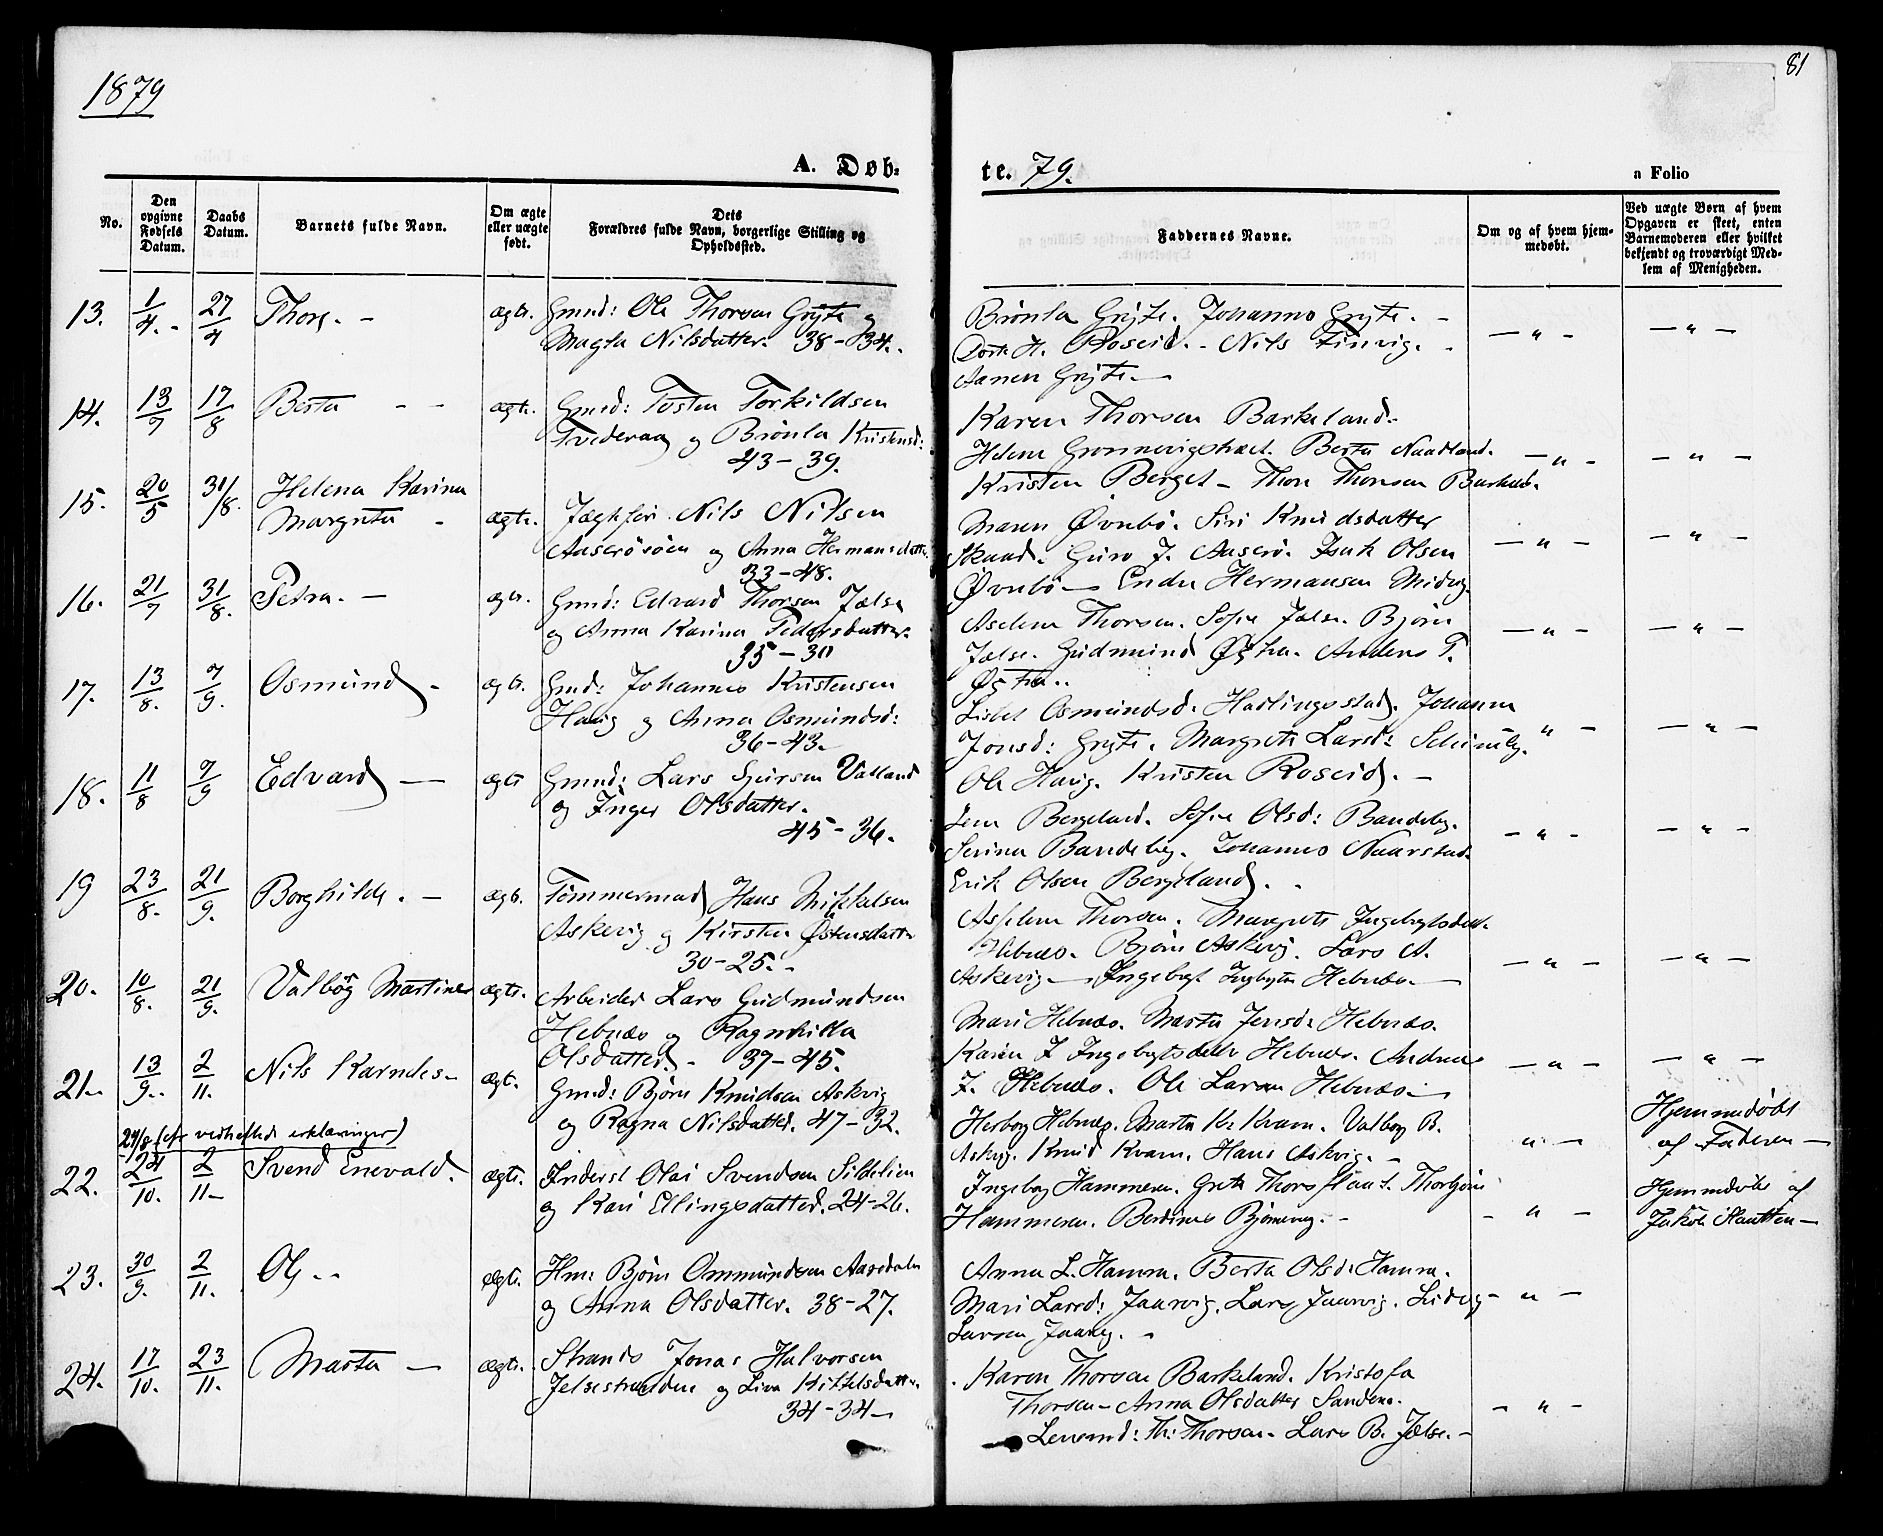 1879
81
A. Døb-
te. 79.
a Folio
No.
Den opgivne Fødsels Datum.
Daabs Datum.
Barnets fulde Navn.
Om ægte eller uægte født.
Dets Forældres fulde Navn, borgerlige Stilling og Opholdssted.
Faddernes Navne.
Om og af hvem hjemmedøbt.
Ved uægte Børn af hvem Opgaven er skeet, enten Barnemoderen eller hvilket bekjendt og troværdigt Medlem af Menigheden.
13. 1/4. - 27/4 Thore. - ægte. Gmnd: Ole Thorsen Gryte og
Magla Nilsdatter. 38-34.
Brønla Gryte. Johannes Gryte. -
H. Roseid. - Nils Finvig. -
Gryte. —
— " - — " —
14. 13/7 17/8 Berta - - ægte. Gmnd: Tosten Torkildsen
Tvederaa og Brønla Kristensd:
43-39.
Karen Thorsen Barkeland.
Helene Berta Naadland.
Kristen Berget - Thore Thorsen Barkel.
— " - — " —
15. 20/5 31/8. Helena Karina
Margreta - ægte. Jægtfør. Nils Nilsen
Aaserøsøen og Anna Hermansdatter.
33-48.
Maren Øvrebø. Siri Knudsdatter
Skaad. Guro J. Aaserø. Isak Olsen
Øvrebø — Endre Hermansen
— " - — " —
16. 21/7 31/8. Petra. — ægte. Gmnd: Edvard Thorsen Jælse
og Anna Karina Pedersdatter.
35-30
Aselene Thorsen. Sofie Jælse. Bjørn
Jælse. Gudmund Østra. Anders T.
Østra..
— " - — " —
17. 13/8. 7/9. Osmund - ægte. Gmd: Johannes Kristensen
Havig og Anna Osmundsd:
36-43.
Lisbet Osmundsd. Johanna
Jonsd: Gryte. Margrete Larsd:
Ole Havig. Kristen Roseid. -
" - — " —
18. 11/8 7/9 Edvard — ægte Gmnd: Lars Sjursen Valland
og Inger Olsdatter.
45-36.
Lene Bergeland. Sofie Olsd: Bandeby.
Serina Bandeby. Johannes Naarstad.
Erik Olsen Bergeland. -
— " - — " —
19 23/8. 21/9. Borghilde. - ægte. Tømmermand Hans Mikkelsen
Askevig og Kirsten Østensdatter
30-25. -
Asselene Thorsen. Margrete Ingebrigtsdatt.
Hebnæs. Bjørn Askevig. Lars A.
Askevig — Ingebrigt Hebnæs. —
— " - — " —
20. 10/8. 21/9. Valbøg Martines ægte. Arbeider Lars Gudmundsen
Hebnæs og Ragnhilda
Olsdatter. - 39-45.
Mari Hebnæs. Marta Jensd: Hebnæs.
Karen J. Ingebrigtsdatter Hebnæs. Andreas
J. Hebnæs. Ole Larsen Hebnæs. —
— " - — " —
21. 13/9. 2/11. Nils Karndes - ægt. Gmnd: Bjørn Knudsen Askvig
og Ragna Nilsdatter. 47-32.
Herborg Hebnæs. Marta Kr. Kvam. Valborg B.
Askvig. Knud Kvam. Hans Askvig. -
" — Hjemmedøbt
af Faderen —
24/8 (cfr vedheftede erklæringer)
22. 24/10. 2/11 - Svend Enevald. ægte. Inderst Olai Svendsen Sildelien
og Kari Ellingsdatter. 24-26.
Ingeborg Hammeren. Grete Thors Slaat. Thorbjørn
Hammeren. Berdines Bjørnevg. -
- " - Hjemmedøbt af
Jakob Slaatten —
23. 30/9. 2/11. Ole. - ægte. Hm: Bjørn Ommundsen Aarsdalen
og Anna Olsdatter. 38-27.
Anna L. Hamra. Berta Olsd: Hamra.
Mari Larsd: Jaarvig. Lars Jaarvig. Ludvig
Larsen Jaarvg. -
- " —
24. 17/10. 23/11. Marta — ægte. Strands. Jonas Halvorsen
Jelsestranden og Liva Kittelsdatter.
34-34 —
Karen Thorsen Barkeland. Kristofa
Thorsen - Anna Olsdatter Sandene.
Lensmd: Th: Thorsen. Lars B. Jælse. -
- " -